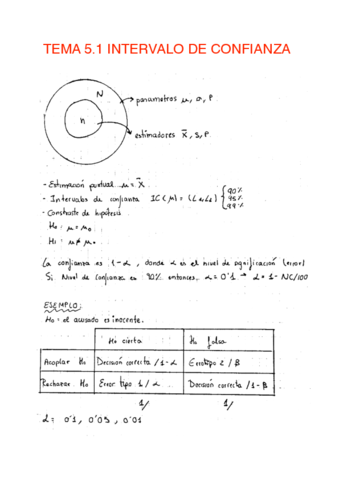 TEMA 5.1 INTERVALO DE CONFIANZA
N
n
parametros μ, σ, P
estimadores X̄, s, p.
- Estimación puntual μ = X̄
- Intervalos de confianza IC(μ) = (L₁, L₂) { 90% 95% 99%
- Constraste de hipótesis
H₀: μ = μ₀
H₁: μ ≠ μ₀
La confianza es 1 - α, donde α es el nivel de significación (error)
Si Nivel de Confianza es 90% entonces, α = 0'1 → α = 1 - NC/100
EJEMPLO:
H₀ = el acusado es inocente.
H₀ cierta
H₀ falsa
Aceptar H₀
Decisión correcta / 1 - α
Error tipo 2 / β
Rechazar H₀
Error tipo 1 / α
Decisión correcta / 1 - β
1/
1/
α = 0'1, 0'05, 0'01